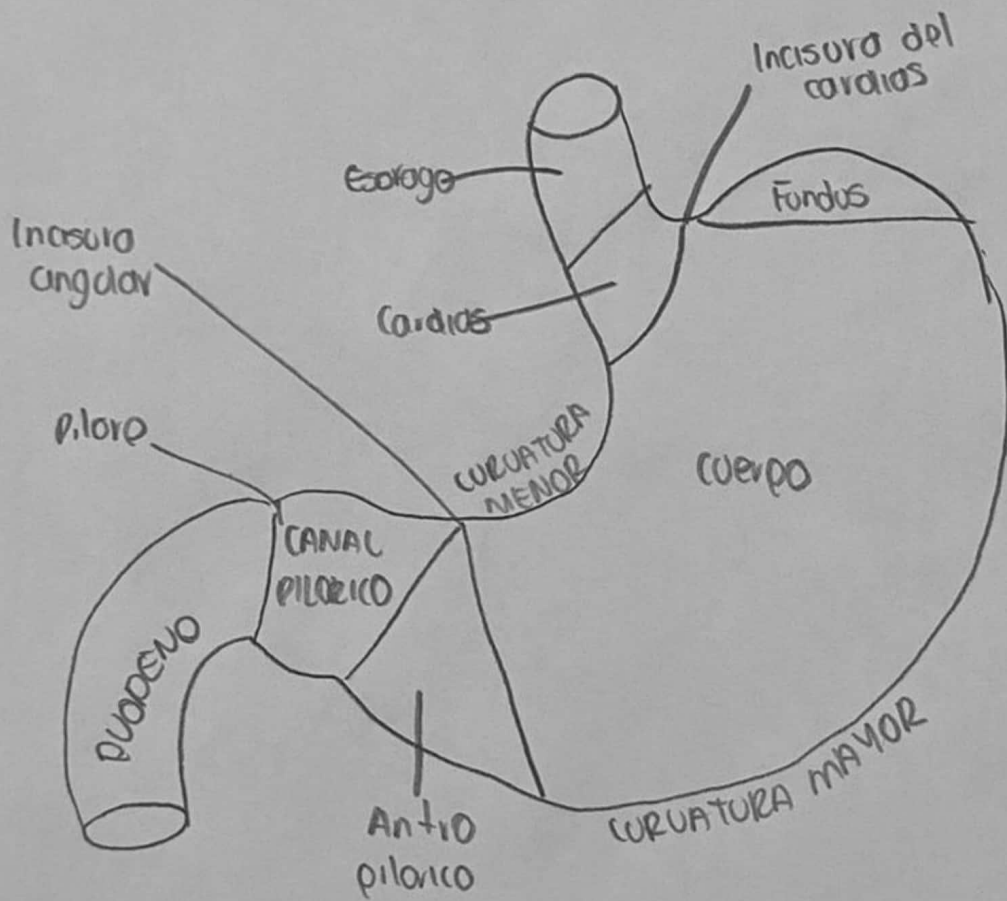 Incisura del
cardias
Esofago
Fundus
Incisura
angular
Cardias
Piloro
CURVATURA
MENOR
Cuerpo
CANAL
PILORICO
DUODENO
CURVATURA MAYOR
Antro
pilorico